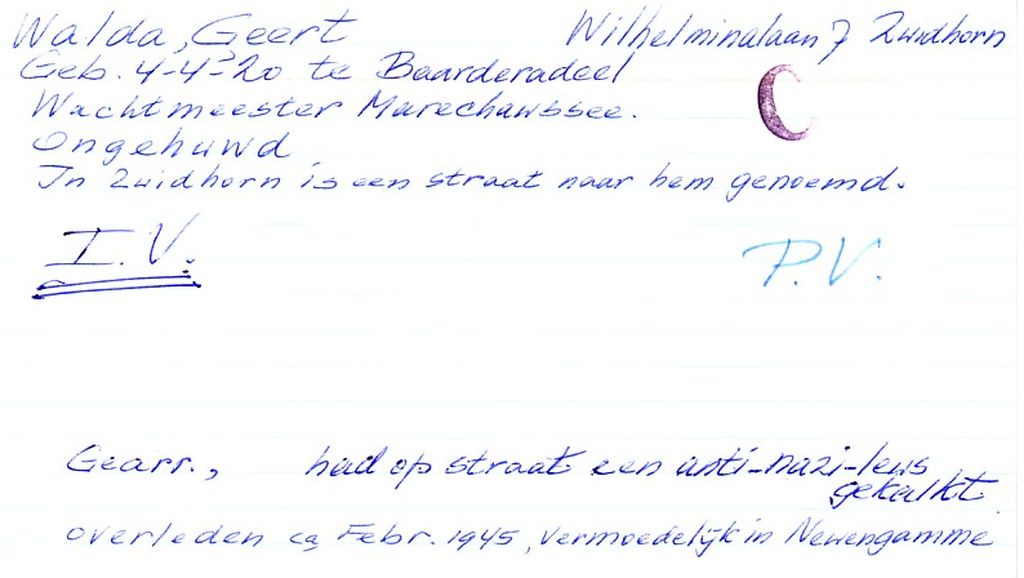 Walda, Geert Wilhelminalaan 7 Zuidhorn
Geb. 4-4-'20 te Baarderadeel
Wachtmeester Marechaussee.
Ongehuwd
In Zuidhorn is een straat naar hem genoemd.
C
I.V. P.V.
Gearr., had op straat een anti-nazi-leus
gekalkt
overleden ca Febr. 1945, vermoedelijk in Neuengamme